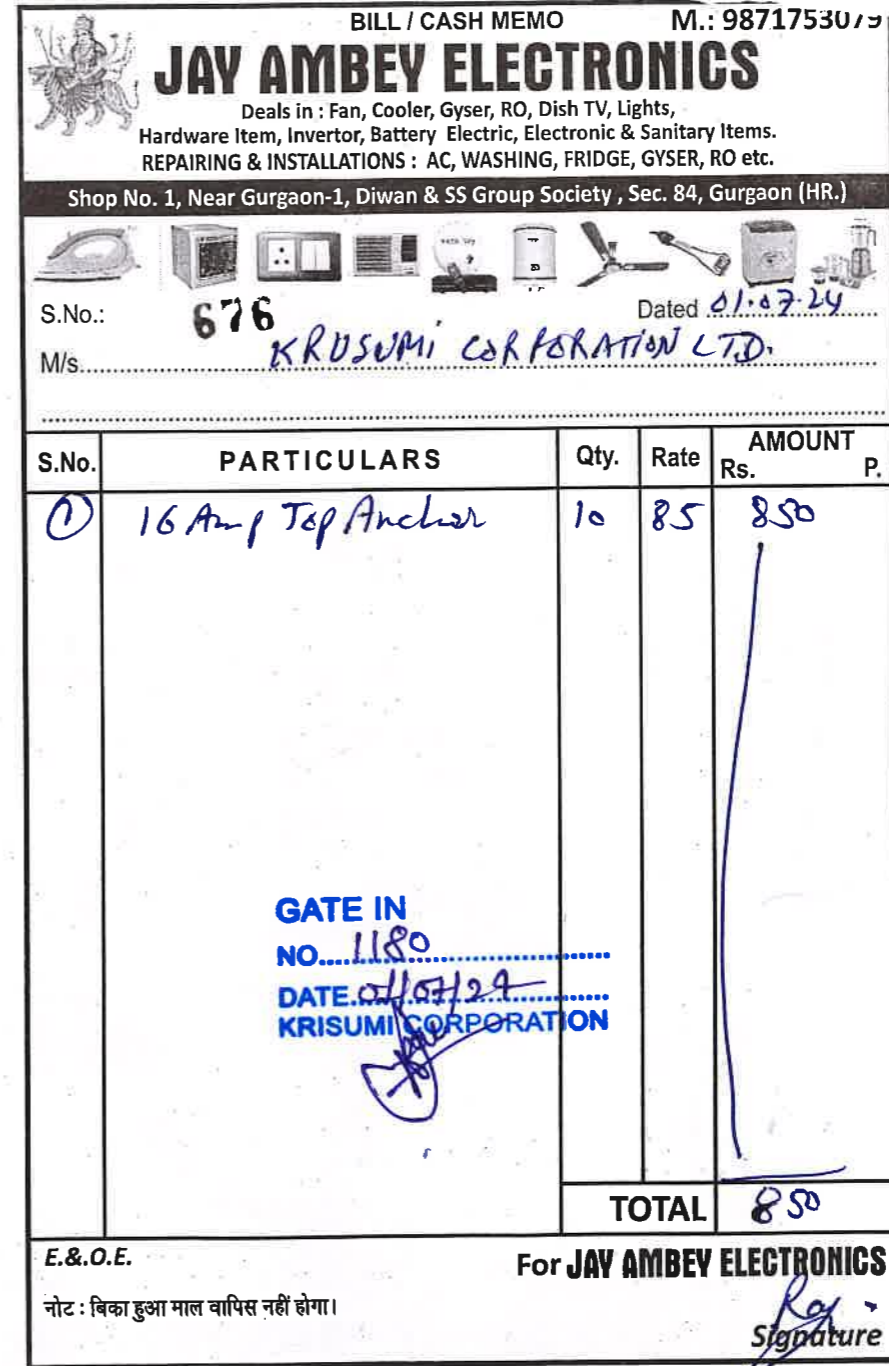 BILL / CASH MEMO M.: 9871753079
JAY AMBEY ELECTRONICS
Deals in : Fan, Cooler, Gyser, RO, Dish TV, Lights,
Hardware Item, Invertor, Battery Electric, Electronic & Sanitary Items.
REPAIRING & INSTALLATIONS : AC, WASHING, FRIDGE, GYSER, RO etc.
Shop No. 1, Near Gurgaon-1, Diwan & SS Group Society , Sec. 84, Gurgaon (HR.)
S.No.: 676 Dated 01.07.24
M/s. KRUSUMi CORPORATION LTD.
S.No. PARTICULARS Qty. Rate AMOUNT
Rs. P.
1 16 Amp Top Anchor 10 85 850
GATE IN
NO....1180
DATE.01/07/24
KRISUMI CORPORATION
TOTAL 850
E.&.O.E. For JAY AMBEY ELECTRONICS
नोट : बिका हुआ माल वापिस नहीं होगा।
Signature